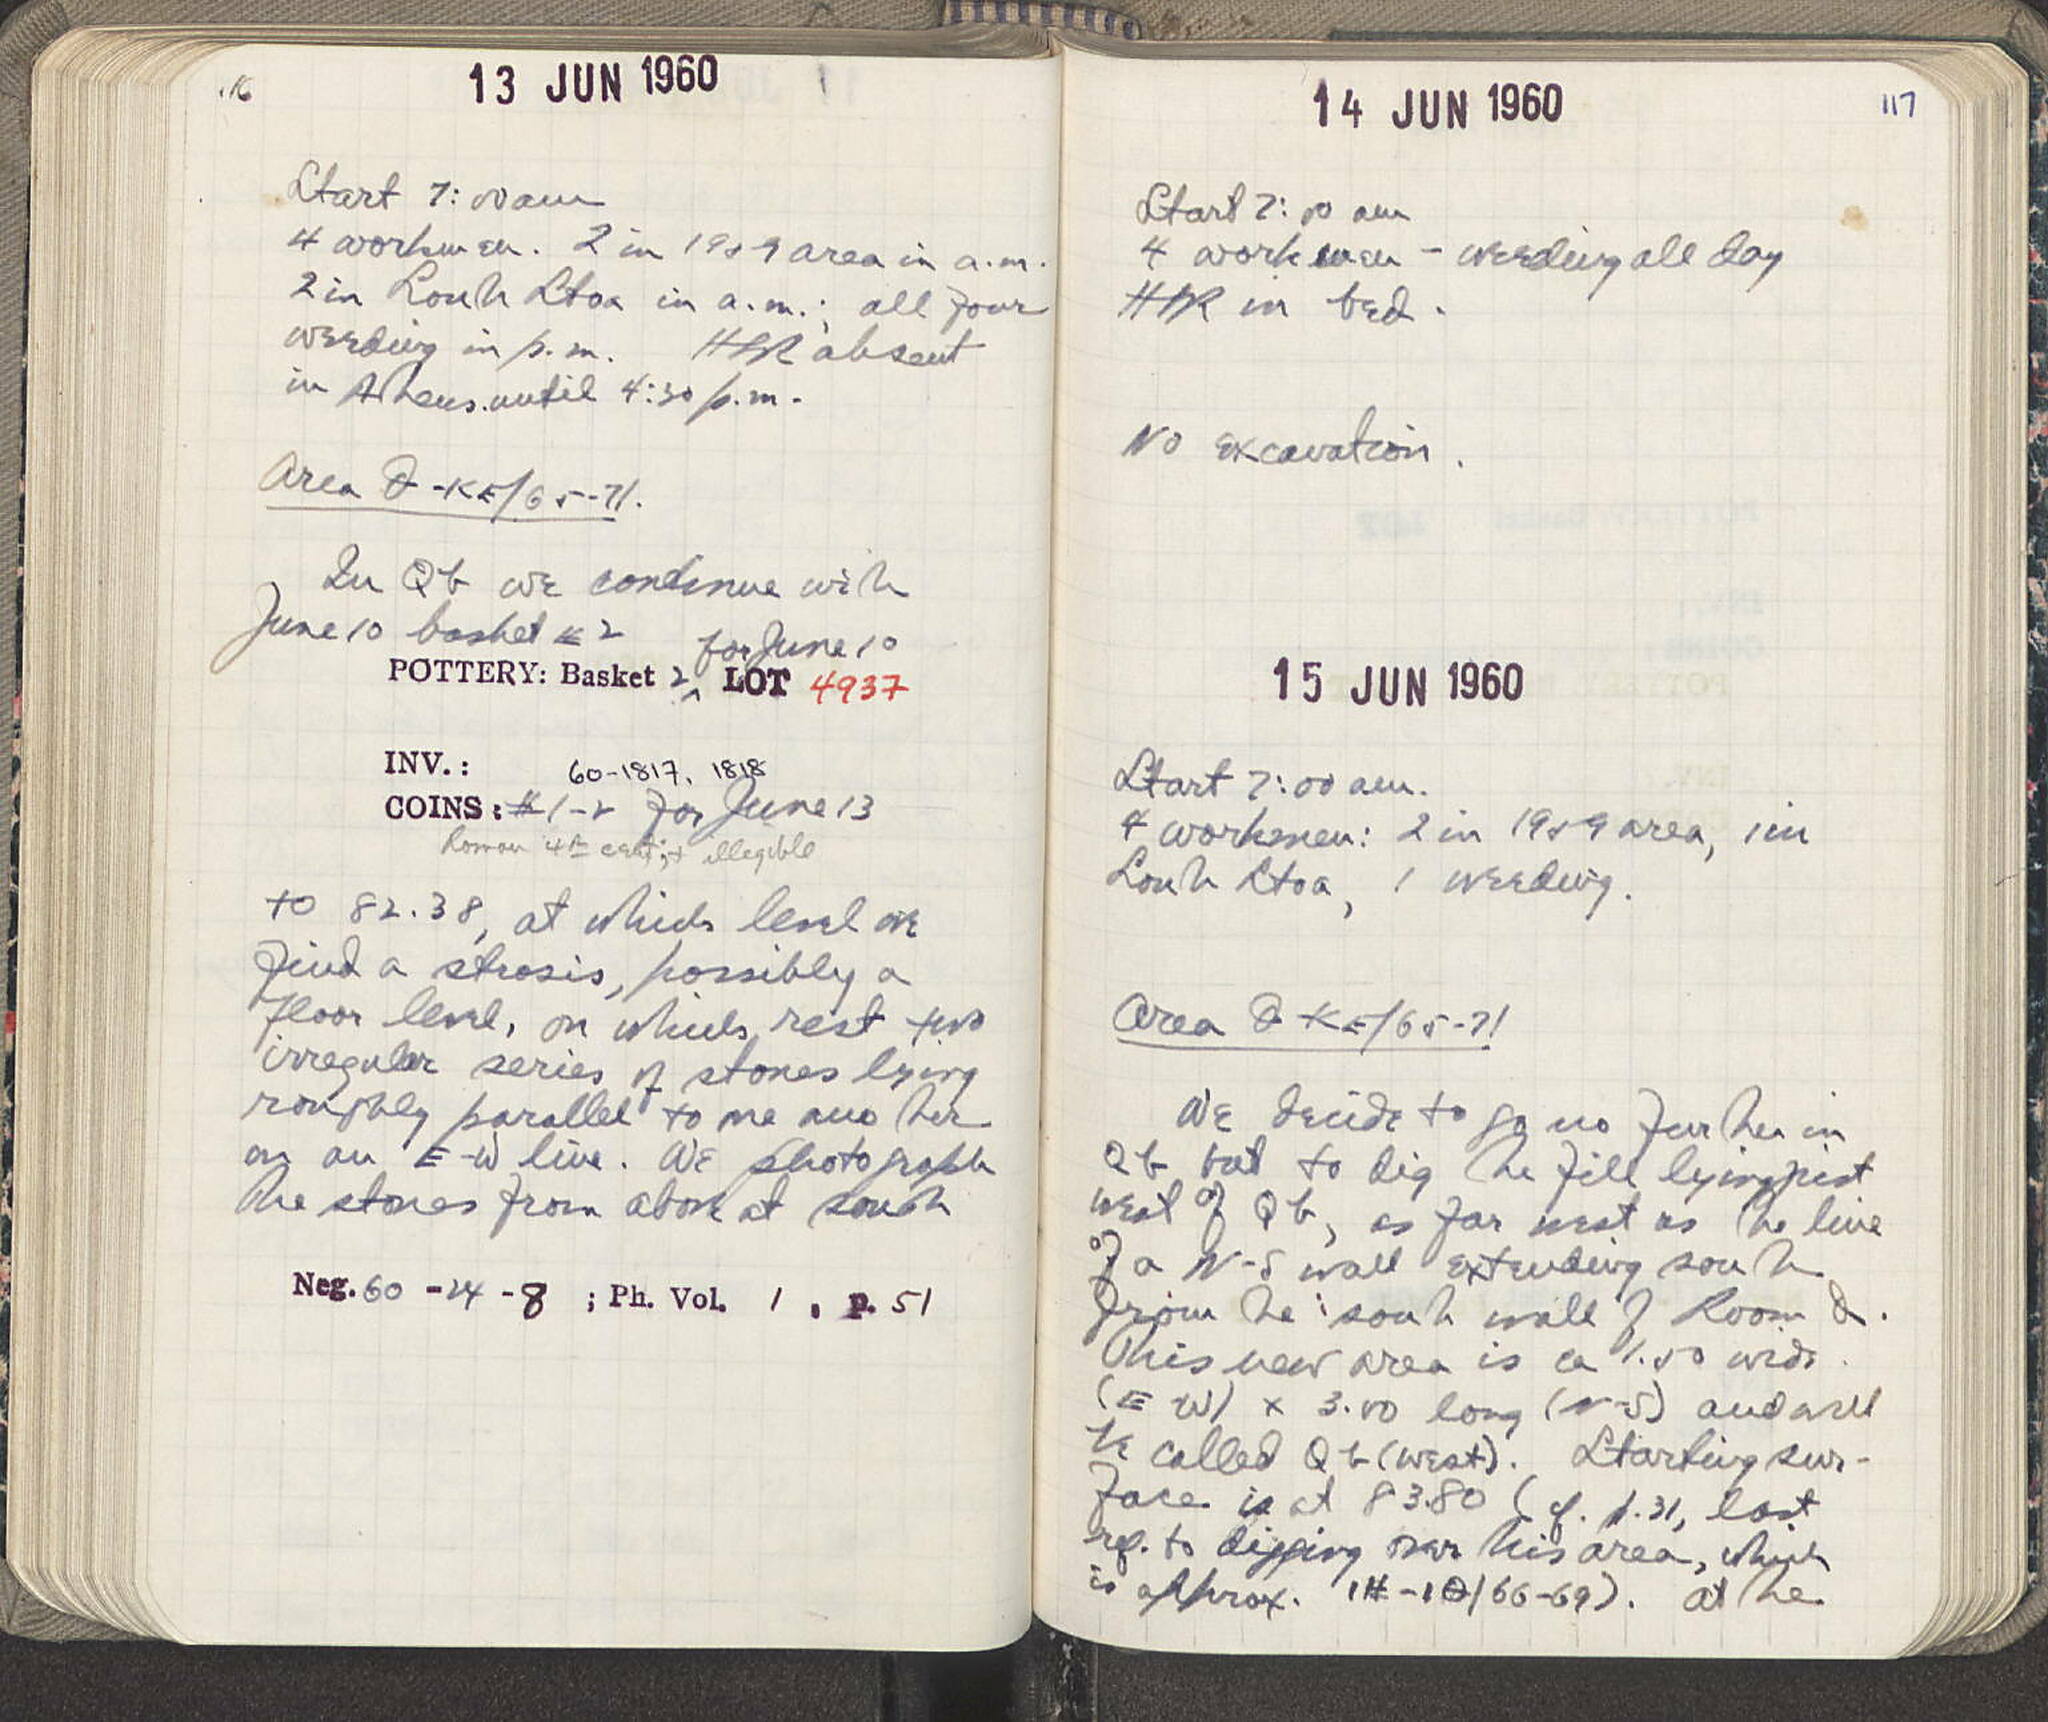 116
13 JUN 1960
Start 7:00 am
4 workmen. 2 in 1959 area in a.m.
2 in South Stoa in a.m.; all four
weeding in p.m. HSR absent
in Athens until 4:30 p.m.
Area -KE/65-71.
In Qb we continue with
June 10 basket #2
for June 10
POTTERY: Basket 2 ^ LOT 4937
INV.: 60-1817, 1818
COINS: #1-2 for June 13
Roman 4th cent; + illegible
to 82.38, at which level we
find a strosis, possibly a
floor level, on which rest two
irregular series of stones lying
roughly parallel to one another
on an E-W line. We photograph
the stones from above at south
Neg. 60 -24 -8 ; Ph. Vol. 1 , p. 51
117
14 JUN 1960
Start 7:00 am
4 workmen - weeding all day
HSR in bed.
No excavation.
15 JUN 1960
Start 7:00 am.
4 workmen: 2 in 1959 area, 1 in
South Stoa, 1 weeding.
Area -KE/65-71
We decide to go no further in
Qb but to dig the fill lying just
west of Qb, as far west as the line
of a N-S wall extending south
from the south wall of Room
This new area is ca 1.50 wide
(E W) x 3.00 long (N-S) and will
be called Qb (west). Starting sur-
face is at 83.80 (cf. p. 31, last
ref. to digging over this area, which
is approx. /66-69). At the